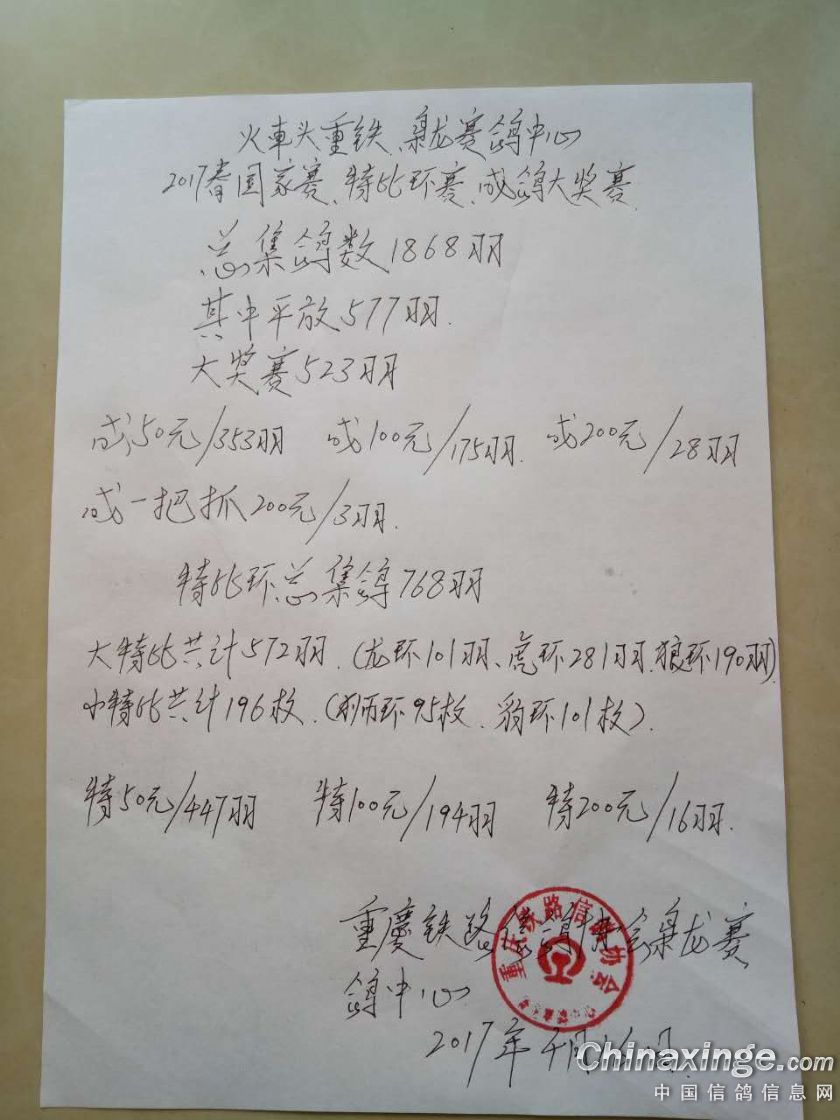 火車头重铁、枭龙赛鸽中心
2017春国家赛、特比环赛、成鸽大奖赛
总集鸽数1868羽
其中平放577羽.
大奖赛523羽
成50元/353羽 成100元/175羽. 成200元/28羽
成一把抓200元/3羽.
特比环总集鸽768羽
大特比共计572羽.(龙环101羽、虎环281羽.狼环190羽)
小特比共计196枚.(狮环95枚.豹环101枚).
特50元/447羽 特100元/194羽 特200元/16羽.
重慶铁路信鸽协会枭龙赛
鸽中心
2017年4月
重庆铁路信鸽协会
Chinaxinge.com
中国信鸽信息网